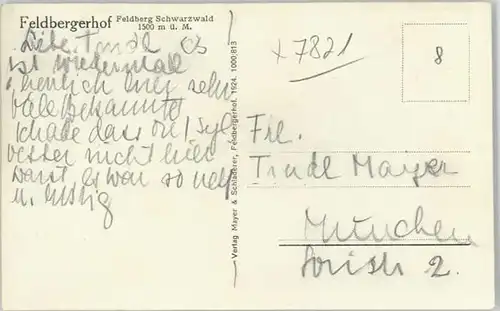 Feldbergerhof Feldberg Schwarzwald
1500 m ü. M.
Liebe Trudl Es
ist wiedermal
herrlich hier sehr
viele Bekannte
schade dass Du Syl
vester nicht hier
warst, es war so nett
u. lustig
Verlag Mayer & Schladerer, Feldbergerhof, 1924. 1000/813
x 7821
8
Frl.
Trudl Mayer
München
2.